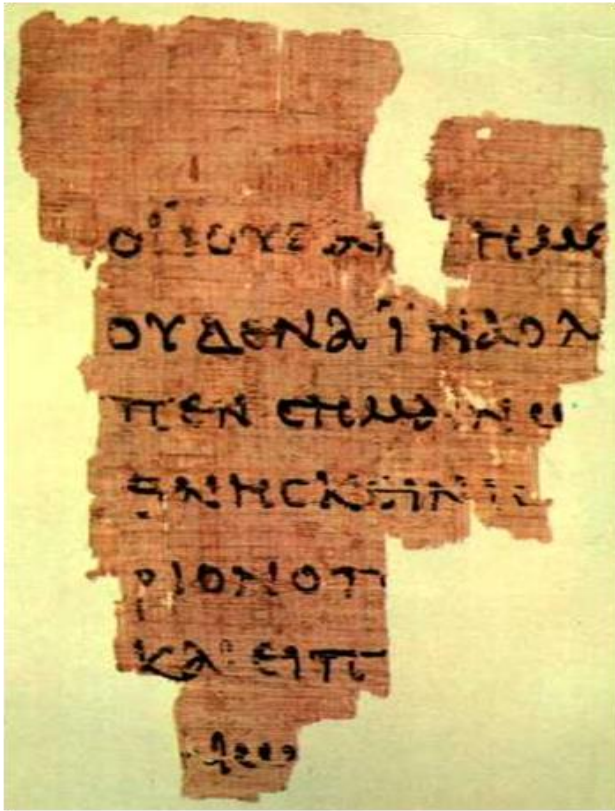 ΟΙ ΙΟΥΔΑΙ ΗΜΕ
ΟΥΔΕΝΑ ΙΝΑ ΟΛ
ΠΕΝ ΣΗΜΑΙΝΩ
ΘΝΗΣΚΕΙΝ ΙΣ
ΡΙΟΝ Ο Π
ΚΑΙ ΕΙΠ